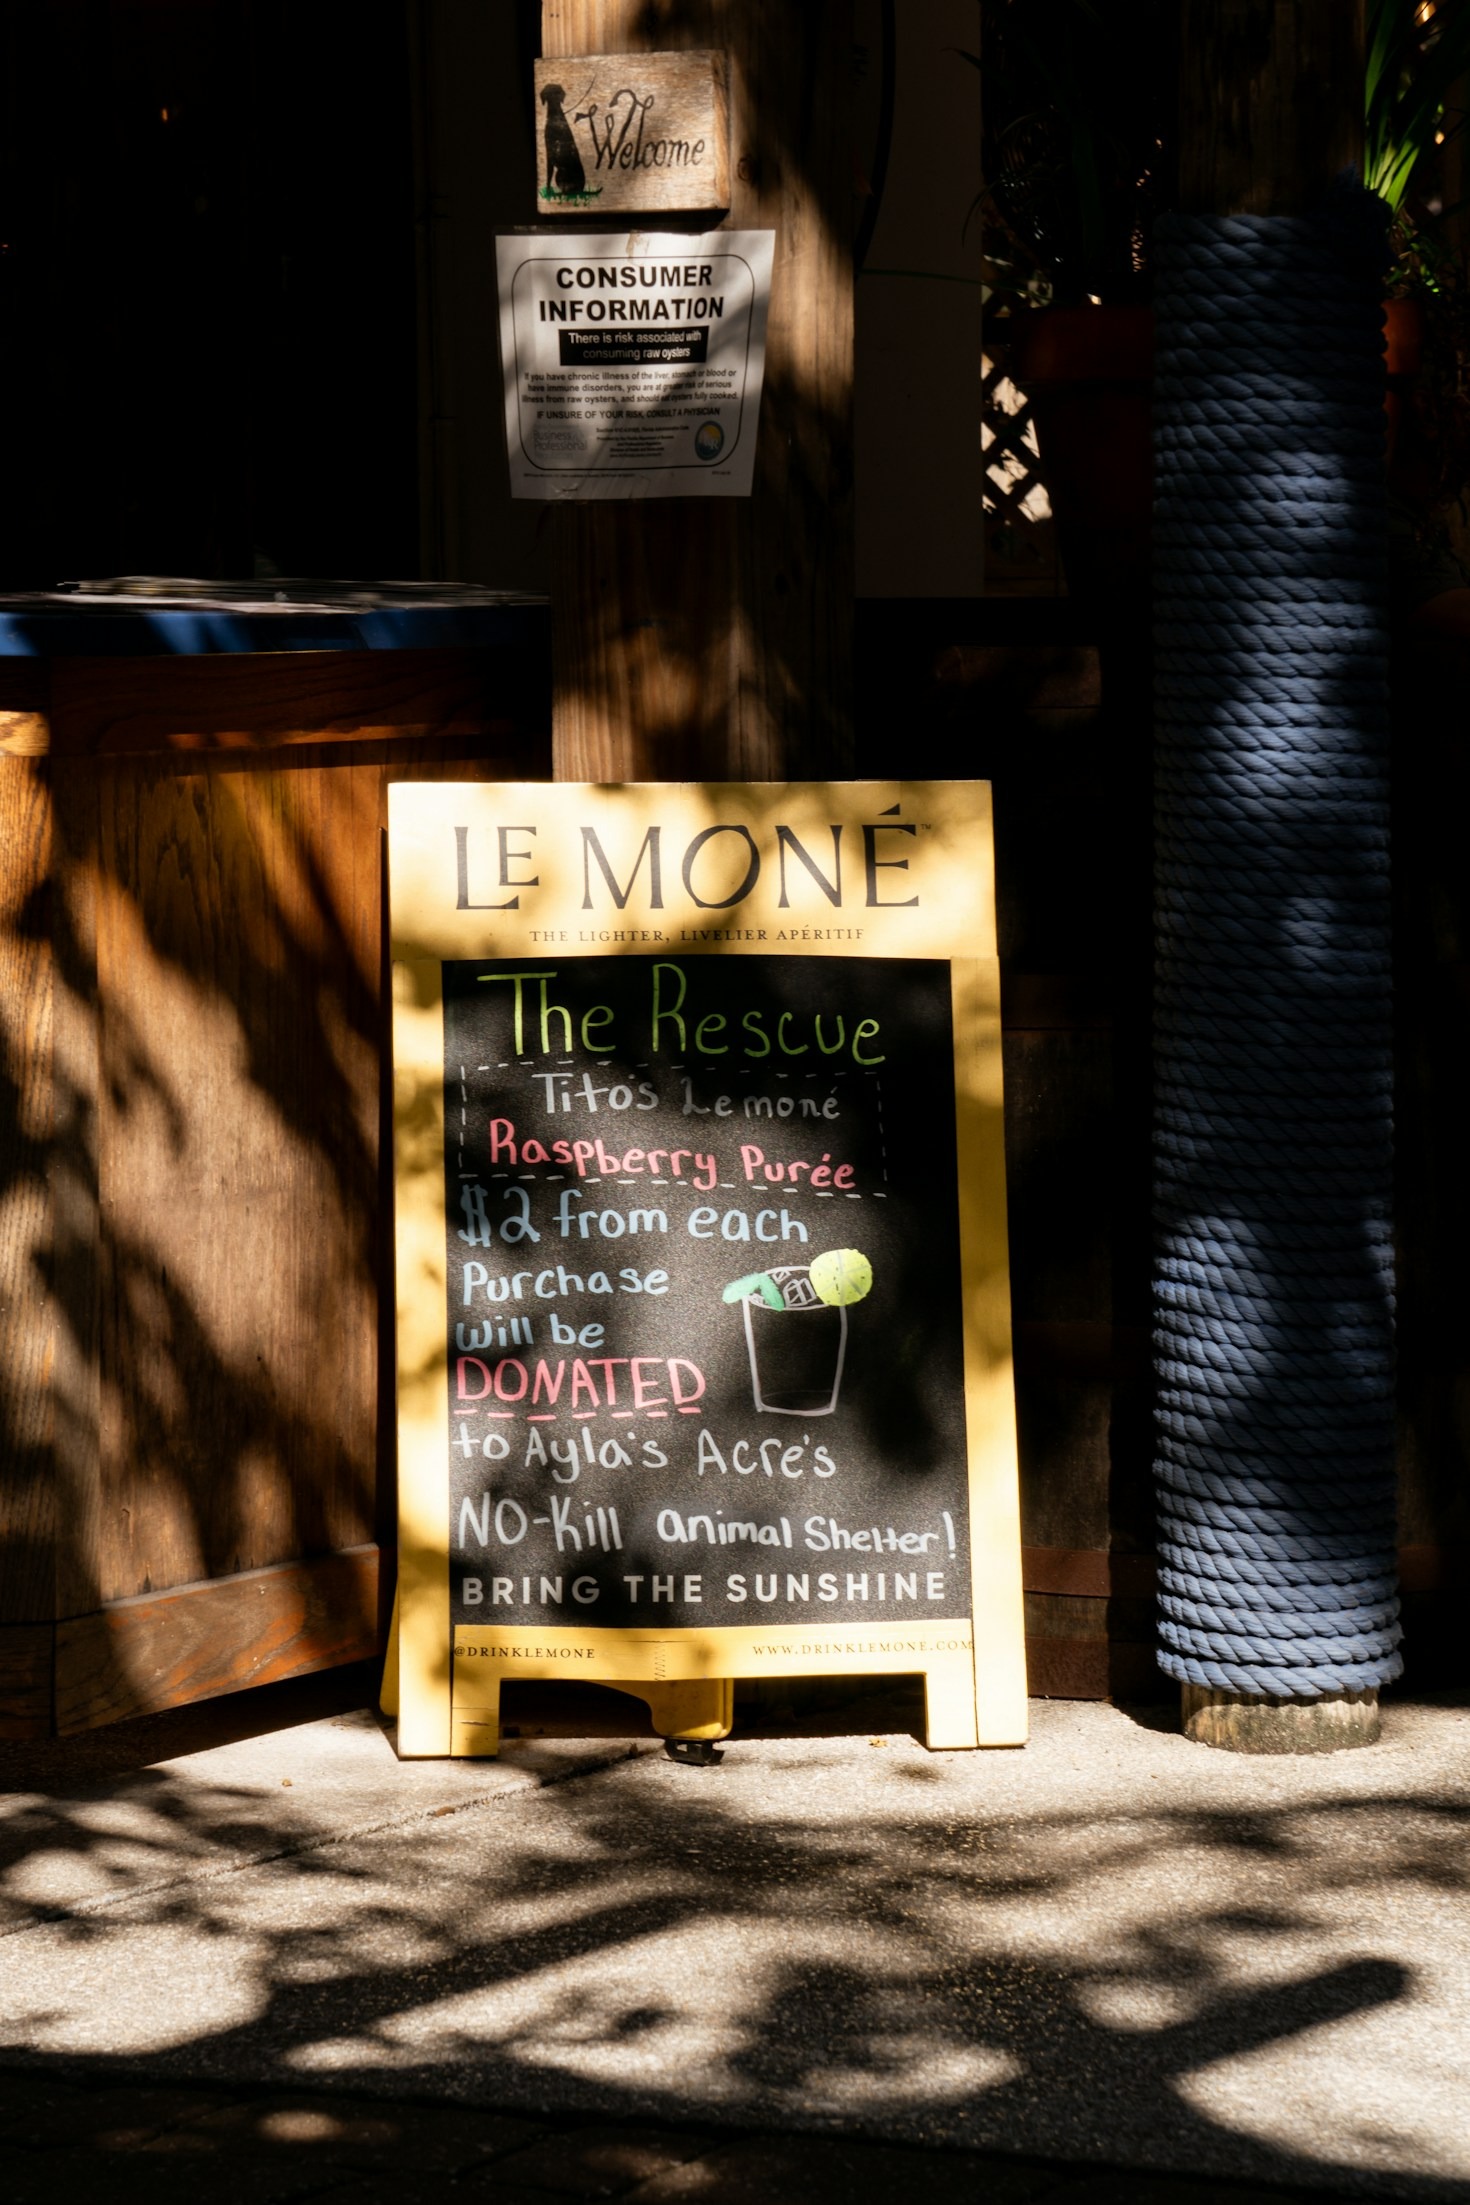 Welcome
CONSUMER
INFORMATION
There is risk associated with
consuming raw oysters
If you have chronic illness of the liver, stomach or blood or
have immune disorders, you are at greater risk of serious
illness from raw oysters, and should eat oysters fully cooked.
IF UNSURE OF YOUR RISK, CONSULT A PHYSICIAN
Business
Professional
LE MONÉ™
THE LIGHTER, LIVELIER APÉRITIF
The Rescue
Tito's Lemoné
Raspberry Purée
$2 from each
Purchase
will be
DONATED
to Ayla's Acre's
NO-Kill animal Shelter!
BRING THE SUNSHINE
@DRINKLEMONE WWW.DRINKLEMONE.COM